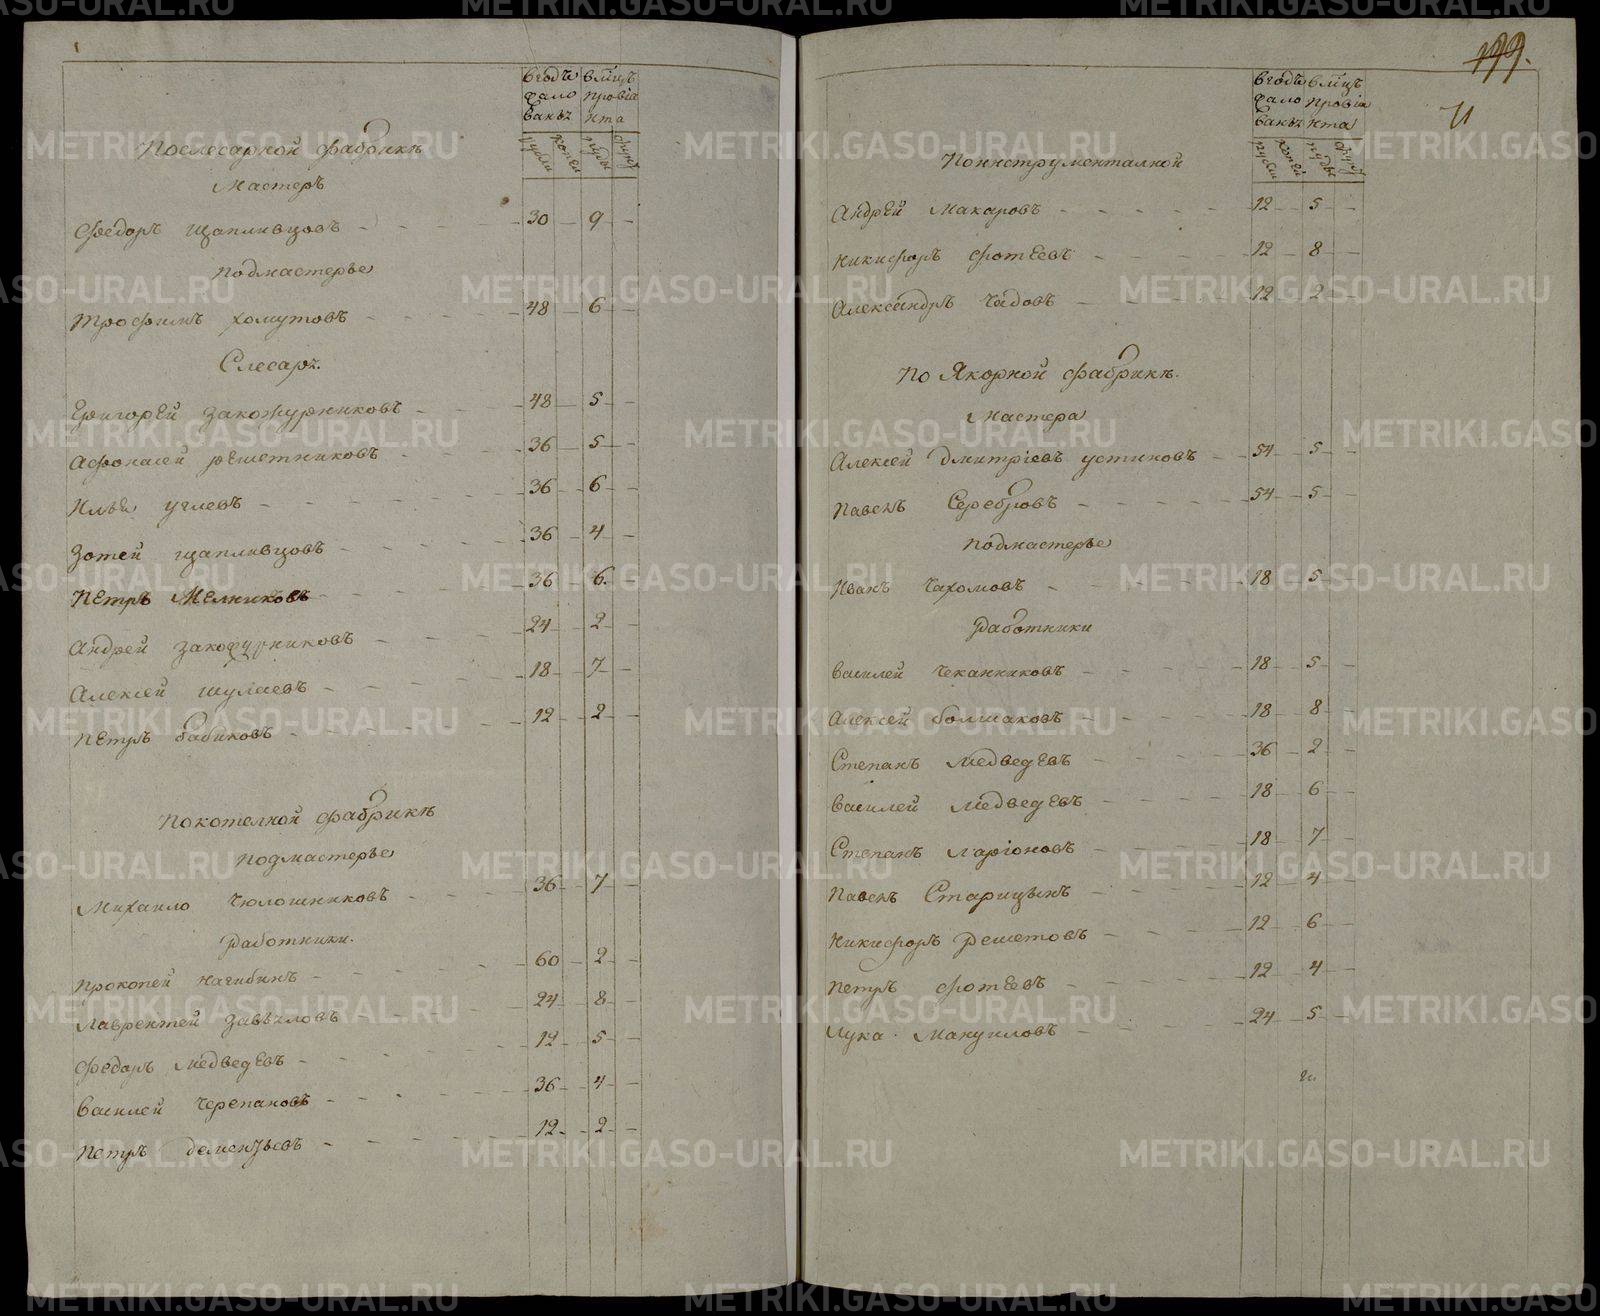 в годъ в мцъ
жало провиа
ванья нта
рубли копеи пуды фунт
По слесарной фабрике
Мастеръ
Федоръ Щапливцовъ 30 9
Подмастерье
Трофимъ Хомутовъ 48 6
Слесари
Григорей Закожурниковъ 48 5
Афонасей Решетниковъ 36 5
Илья Углевъ 36 6
Зотей Щапливцовъ 36 4
Петръ Мелниковъ 36 6
Андрей Закожурниковъ 24 2
Алексей Шулаевъ 18 7
Петръ Бабиковъ 12 2
По котелной фабрикѣ
Подмастерье
Михаило Чюлошниковъ 36 7
Работники.
Прокопей Нагибинъ 60 2
Лаврентей Завьяловъ 24 8
Федоръ Медведевъ 12 5
Василей Черепановъ 36 4
Петръ Дементьевъ 12 2
199.
в годъ в мцъ
жало провиа
ванья нта
рубли копеи пуды фунт
По инструменталной
Андрей Макаровъ 12 5
Никифоръ Фотеевъ 12 8
Александръ Чадовъ 12 2
По Якорной фабрикѣ.
Мастера
Алексей Дмитріевъ Устиновъ 54 5
Павелъ Серебровъ 54 5
Подмастерье
Иванъ Пахомовъ 18 5
Работники
Василей Чеканниковъ 18 5
Алексей Болшаковъ 18 8
Степанъ Медведевъ 36 2
Василей Медведевъ 18 6
Степанъ Ларіоновъ 18 7
Павелъ Старицынъ 12 4
Никифоръ Решетовъ 12 6
Петръ Фотеевъ 12 4
Лука Мануиловъ 24 5
METRIKI.GASO-URAL.RU